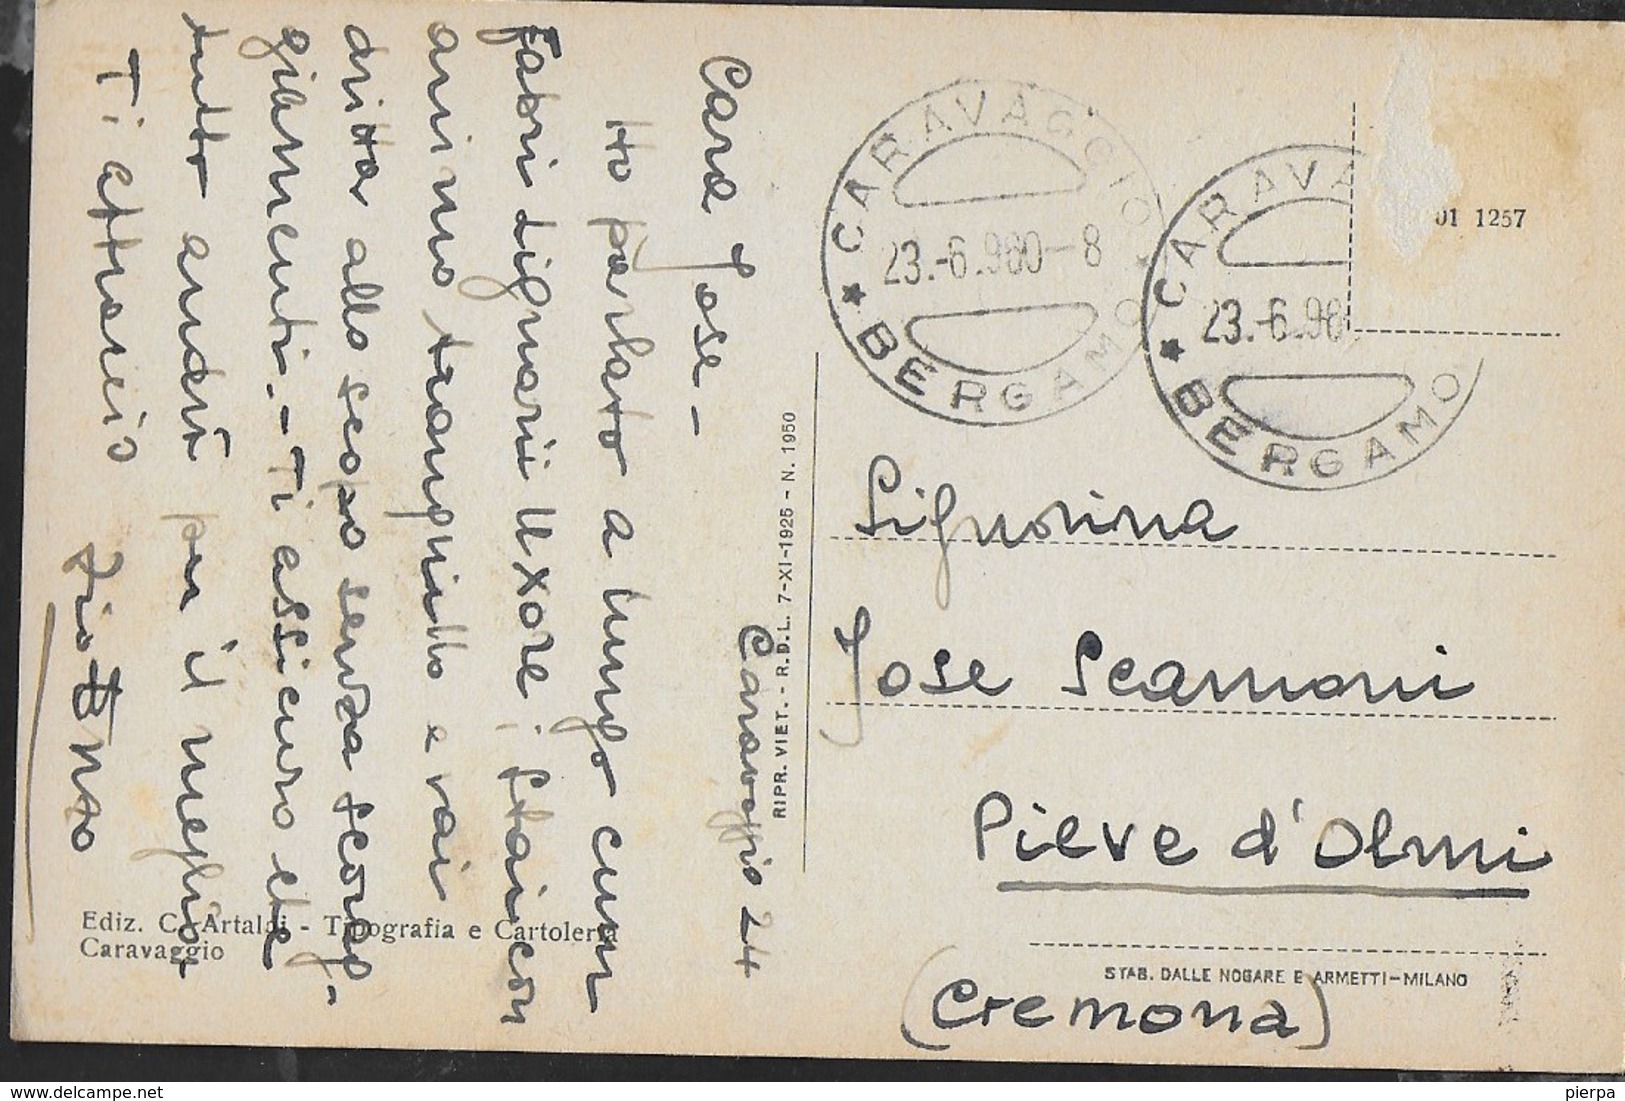 Caravaggio 24
Cara Jose -
Ho parlato a lungo cum
Fabri dignarii Uxore; stai con
animo tranquillo e vai
dritta allo scopo senza scorag-
giamenti. - Ti assicuro che
tutto andrà per il meglio.
Ti abbraccio
Zio
Ediz. C. Artaldi - Tipografia e Cartoleria
Caravaggio
RIPR. VIET. - R.D.L. 7-XI-1925 - N. 1950
CARAVAGGIO
23.-6.960-8
BERGAMO
CARAVA
23.-6.96
BERGAMO
01 1257
Signorina
Jose Scamoni
Pieve d'Olmi
(Cremona)
STAB. DALLE NOGARE E ARMETTI-MILANO
pierpa